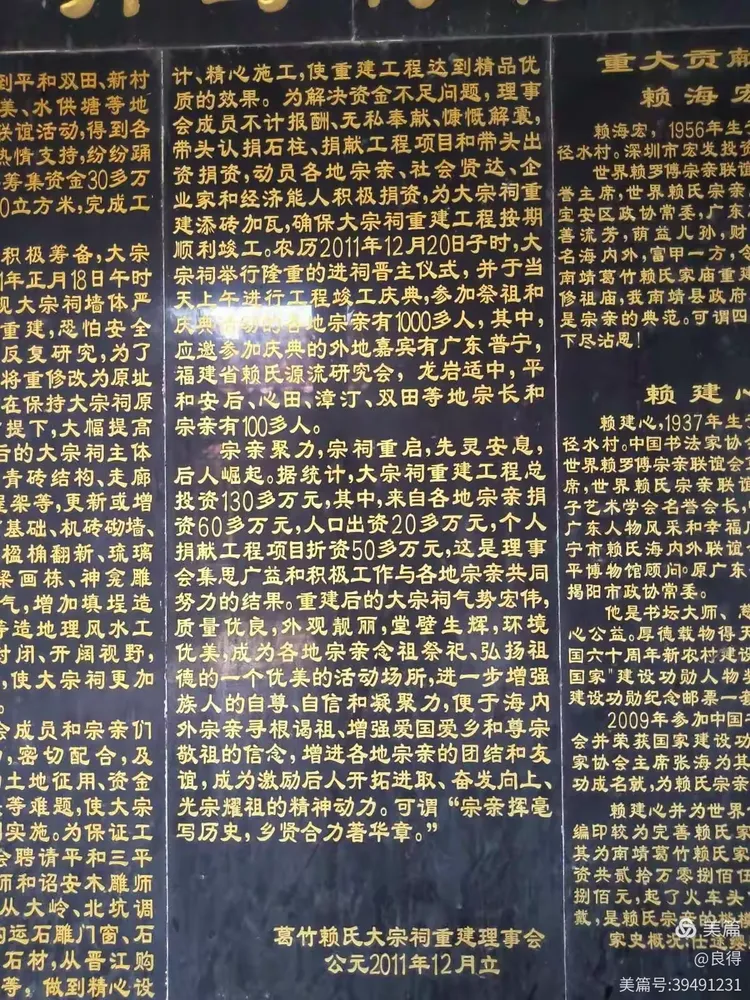 到平和双田、新村
美、水供塘等地
联谊活动,得到各
热情支持,纷纷踊
筹集资金30多万
0立方米,完成工
积极筹备,大宗
1年正月18日午时
现大宗祠墙体严
重建,恐怕安全
反复研究,为了
将重修改为原址
在保持大宗祠原
前提下,大幅提高
后的大宗祠主体
青砖结构、走廊
屋架等,更新或增
基础、机砖砌墙、
楹桷翻新、琉璃
梁画栋、神龛雕
气,增加填埕造
等造地理风水工
封闭、开阔视野,
,使大宗祠更加
。
会成员和宗亲们
,密切配合,及
土地征用、资金
等难题,使大宗
利实施。为保证工
会聘请平和三平
师和诏安木雕师
从大岭、北坑调
购运石雕门窗、石
石材,从晋江购
等,做到精心设
计、精心施工,使重建工程达到精品优
质的效果。为解决资金不足问题,理事
会成员不计报酬、无私奉献、慷慨解囊,
带头认捐石柱、捐献工程项目和带头出
资捐资,动员各地宗亲、社会贤达、企
业家和经济能人积极捐资,为大宗祠重
建添砖加瓦,确保大宗祠重建工程按期
顺利竣工。农历2011年12月20日子时,大
宗祠举行隆重的进祠晋主仪式,并于当
天上午进行工程竣工庆典,参加祭祖和
庆典活动的各地宗亲有1000多人,其中,
应邀参加庆典的外地嘉宾有广东普宁,
福建省赖氏源流研究会,龙岩适中,平
和安后、心田、漳汀、双田等地宗长和
宗亲有100多人。
宗亲聚力,宗祠重启,先灵安息,
后人崛起。据统计,大宗祠重建工程总
投资130多万元,其中,来自各地宗亲捐
资60多万元,人口出资20多万元,个人
捐献工程项目折资50多万元,这是理事
会集思广益和积极工作与各地宗亲共同
努力的结果。重建后的大宗祠气势宏伟,
质量优良,外观靓丽,堂壁生辉,环境
优美,成为各地宗亲念祖祭祀、弘扬祖
德的一个优美的活动场所,进一步增强
族人的自尊、自信和凝聚力,便于海内
外宗亲寻根谒祖、增强爱国爱乡和尊宗
敬祖的信念,增进各地宗亲的团结和友
谊,成为激励后人开拓进取、奋发向上、
光宗耀祖的精神动力。可谓“宗亲挥毫
写历史,乡贤合力著华章。”
葛竹赖氏大宗祠重建理事会
公元2011年12月立
重大贡献
赖海宏
赖海宏,1956年生
径水村。深圳市宏发投资
世界赖罗傅宗亲联谊
誉主席,世界赖氏宗亲
宝安区政协常委,广东
善流芳,荫益儿孙,财
名海内外,富甲一方,令
南靖葛竹赖氏家庙重建
修祖庙,我南靖县政府
是宗亲的典范。可谓四
下尽沾恩!
赖建心
赖建心,1937年生
径水村。中国书法家协
世界赖罗傅宗亲联谊会
席,世界赖氏宗亲联谊
子艺术学会名誉会长,
广东人物风采和幸福
宁市赖氏海内外联谊
平博物馆顾问。原广东
揭阳市政协常委。
他是书坛大师、
心公益。厚德载物得
国六十周年新农村建设
国家”建设功勋人物
建设功勋纪念邮票一
2009年参加中国
会并荣获国家建设功
家协会主席张海为其
功成名就,为赖氏宗亲
赖建心并为世界
编印较为完善赖氏家
其为南靖葛竹赖氏家
资共贰拾万零捌佰伍
捌佰元,起了火车头
戴,是赖氏宗亲的楷模
家史概况
美篇
@良得
美篇号:39491231